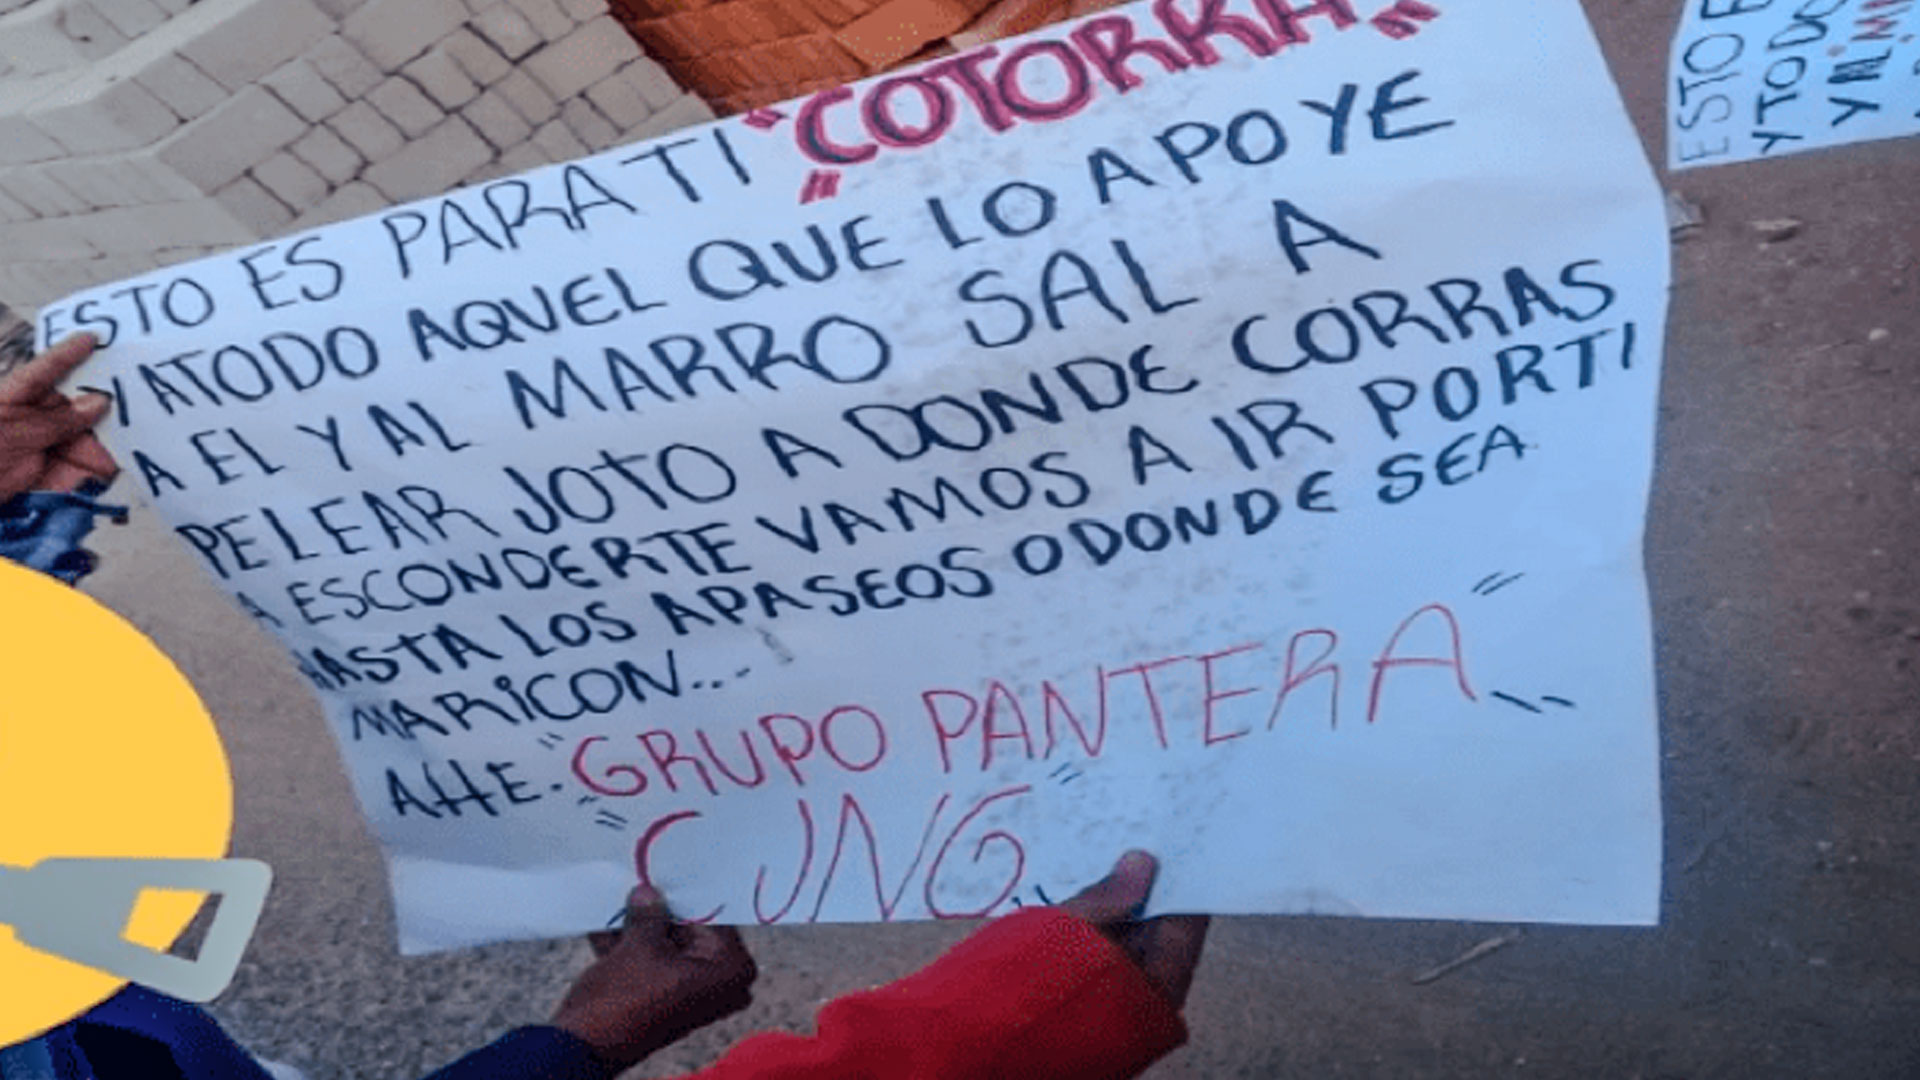 ESTO ES PARA TI "COTORRA"
Y A TODO AQUEL QUE LO APOYE
A EL Y AL MARRO SAL A
PELEAR JOTO A DONDE CORRAS
A ESCONDERTE VAMOS A IR POR TI
HASTA LOS APASEOS O DONDE SEA
MARICON...
AHE. "GRUPO PANTERA"
"CJNG"
ESTO E
Y TODO
Y AL M